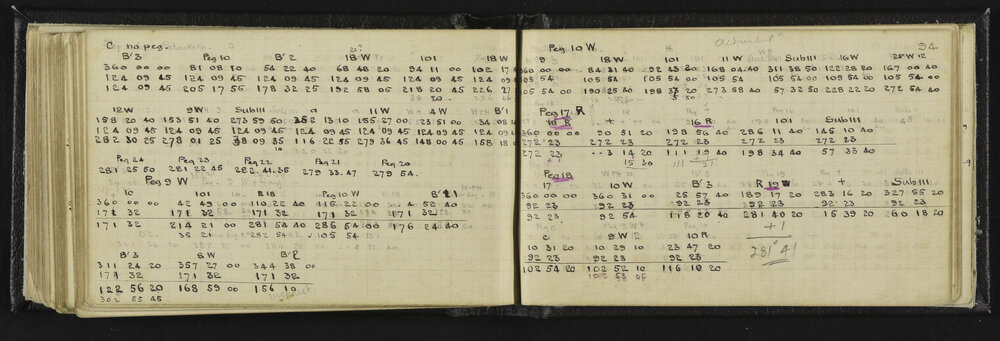 C no peg.
B'3 Peg 10 B'2 18 W 101 18 W
360 00 00 81 08 10 54 22 40 68 48 20 94 11 00 102 17
124 09 45 124 09 45 124 09 45 124 09 45 124 09 45 124 09
124 09 45 205 17 55 178 32 25 192 58 05 218 20 45 226 27
12W 9W Sub III a a 11 W 4W B'1
158 20 40 153 51 40 273 59 50 352 13 10 155 27 00 23 51 00 34 08
124 09 45 124 09 45 124 09 45 124 09 45 124 09 45 124 09 45 124 09
282 30 25 278 01 25 38 09 35 116 22 55 279 36 45 148 00 45 158 18
Peg 24 Peg 23 Peg 22 Peg 21 Peg 20
281 25 50 281 22 45 282.41.35 279 33.47 279 54.
Peg 9 W
1c 101 R18 Peg 10 W B'1
360 00 00 42 49 00 110 22 40 115 22 00 4 52 40
171 32 171 32 171 32 171 32 171 32
171 32 214 21 00 281 54 40 286 54 00 176 24 40
35 21 105 54
B'3 8W B'2
311 24 20 357 27 00 344 38 00
171 32 171 32 171 32
122 56 20 168 59 00 156 10
302 55 45
94
Peg 10 W.
9 18 W 101 11 W Sub III 16 W 12 W
360 00 00 84 31 40 92 43 20 168 04 40 311 38 50 122 28 20 167 00 40
105 54 105 54 00 105 54 00 105 54 105 54 00 105 54 00 105 54
105 54 190 25 40 198 37 20 273 58 40 57 32 50 228 22 20 272 54 40
Peg 17 R
18 R + 16 R 101 Sub III
360 00 00 90 51 20 198 56 40 286 11 40 145 10 40
272 23 272 23 272 23 272 23 272 23
272 23 3 14 20 111 19 40 198 34 40 57 33 40
15 30
Peg 18
17 10 W B'3 R 19 + Sub III
360 00 00 360 31 00 25 57 40 189 17 20 283 16 20 327 55 20
92 23 92 23 92 23 92 23 92 23 92 23
92 23 92 54 118 20 40 281 40 20 15 39 20 60 18 20
+1
281° 41
c 9 W 2 10 R
10 31 20 10 29 10 23 47 20
92 23 92 23 92 23
102 54 20 102 52 10 116 10 20